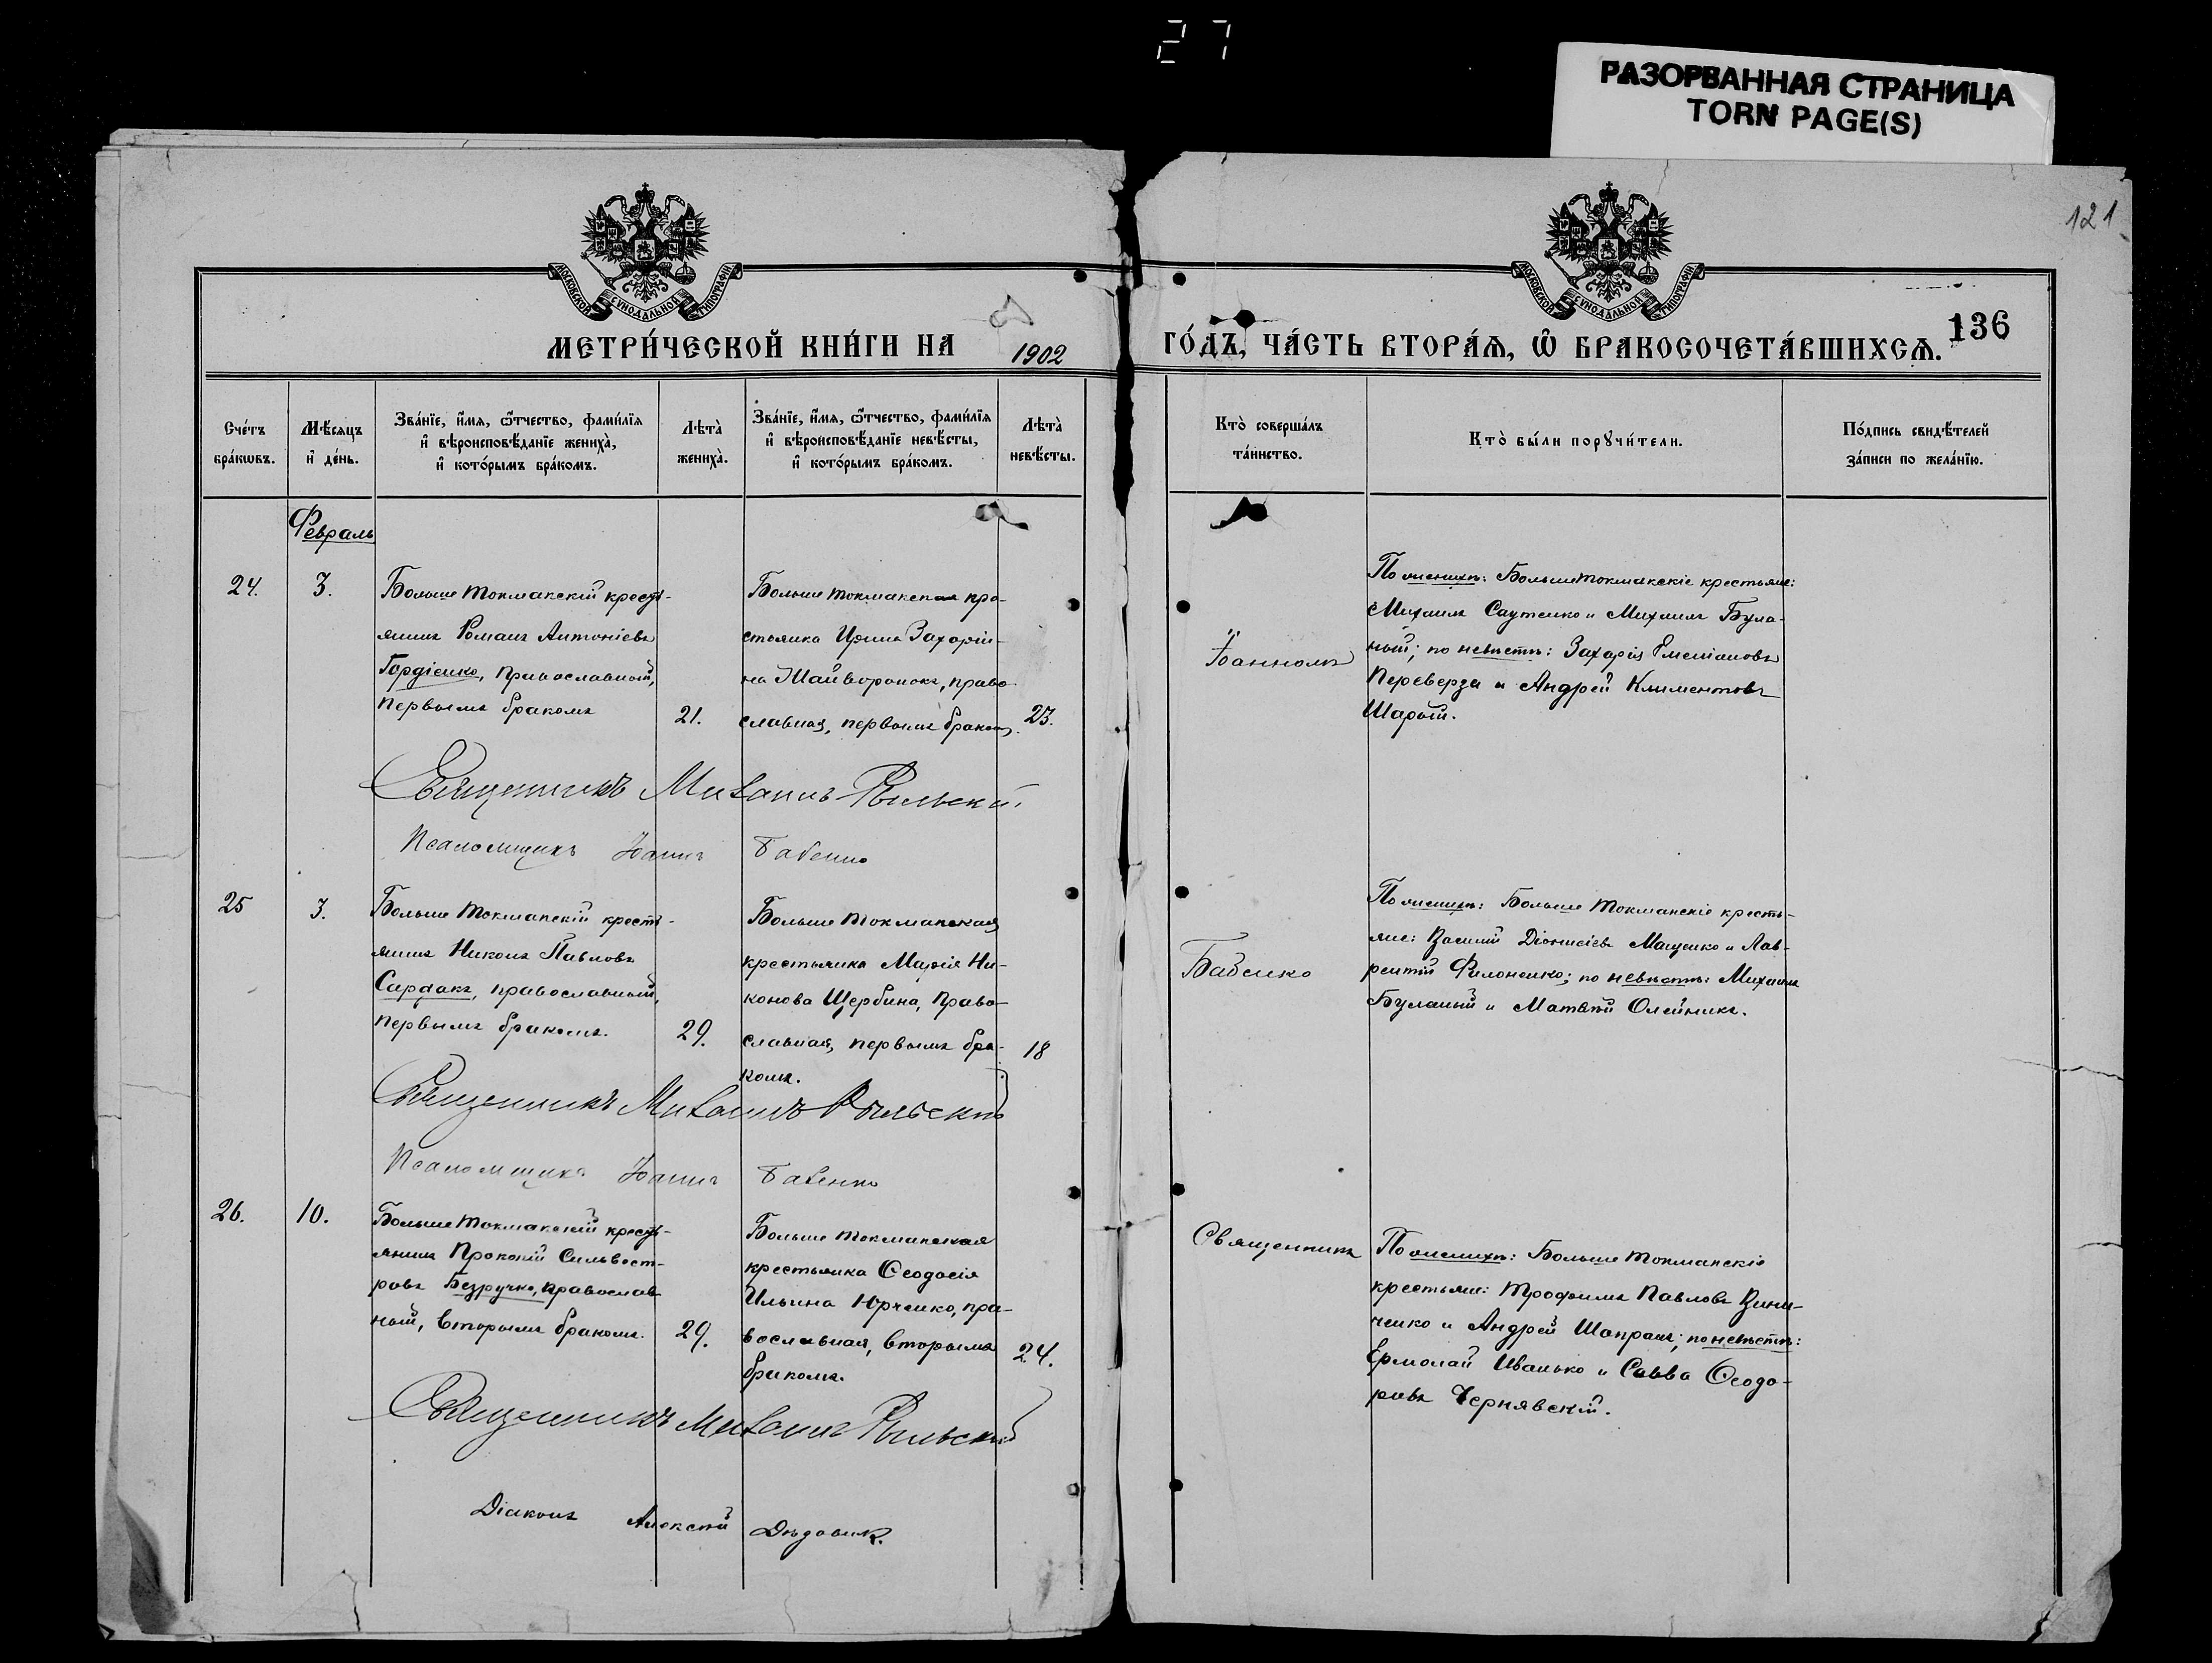 27
РАЗОРВАННАЯ СТРАНИЦА
TORN PAGE(S)
121
136
МОСКОВСКОЙ СѴНОДАЛЬНОЙ ТИПОГРАФІИ
МОСКОВСКОЙ СѴНОДАЛЬНОЙ ТИПОГРАФІИ
МЕТРИ́ЧЕСКОЙ КНИ́ГИ НА 1902 ГО́ДЪ, ЧА́СТЬ ВТОРА́Ѧ, Ѽ БРАКОСОЧЕТА́ВШИХСѦ.
Сче́тъ
бра́кѡвъ.
Мѣ́сяцъ
и҆ де́нь.
Зва́нїе, и҆́мя, ѻ҆́тчество, фами́лїя
и҆ вѣроисповѣ́данїе жениха̀,
и҆ кото́рымъ бра́комъ.
Лѣта̀
жениха̀.
Зва́нїе, и҆́мя, ѻ҆́тчество, фами́лїя
и҆ вѣроисповѣ́данїе невѣ́сты,
и҆ кото́рымъ бра́комъ.
Лѣта̀
невѣ́сты.
Кто̀ соверша́лъ
та́инство.
Кто̀ бы́ли порꙋчи́тели.
По́дпись свидѣ́телей
за́писи по жела́нїю.
Февраль
24.
3.
Больше Токмакскій кресть-
янинъ Романъ Антоніевъ
Гордіенко, православный,
первымъ бракомъ
21.
Больше Токмакская кре-
стьянка Ирина Захаріи-
на Шайворонокъ, право-
славная, первымъ бракомъ.
23.
Іоанномъ
По женихѣ: Больше Токмакскіе крестьяне:
Михаилъ Саутенко и Михаилъ Була-
ный; по невѣстѣ: Захарія Емеліановъ
Переверза и Андрей Климентовъ
Шарый.
Священникъ Михаилъ Рыльскій.
Псаломщикъ Іоаннъ Бабенко
25
3.
Больше Токмакскій кресть-
янинъ Никонъ Павловъ
Сардакъ, православный,
первымъ бракомъ.
29.
Больше Токмакская
крестьянка Марія Ни-
конова Щербина, Право-
славная, первымъ бра-
комъ.
18
Бабенко
По женихѣ: Больше Токмакскіе кресть-
яне: Василій Діонисіевъ Маценко и Лав-
рентій Филоненко; по невѣстѣ: Михаилъ
Буланый и Матвѣй Олейникъ.
Священникъ Михаилъ Рыльскій
Псаломщикъ Іоаннъ Бабенко
26.
10.
Больше Токмакскій кресть-
янинъ Прокопій Сильвест-
ровъ Безручко, православ
ный, вторымъ бракомъ.
29.
Больше Токмакская
крестьянка Ѳеодосія
Ильина Юрченко, пра-
вославная, вторымъ
бракомъ.
24.
Священникъ
По женихѣ: Больше Токмакскіе
крестьяне: Трофимъ Павловъ Вини-
ченко и Андрей Шапранъ; по невѣстѣ:
Ермолай Иванько и Савва Ѳеодо-
ровъ Чернявскій.
Священникъ Михаилъ Рыльскій
Діаконъ Алексѣй Дѣдовик.